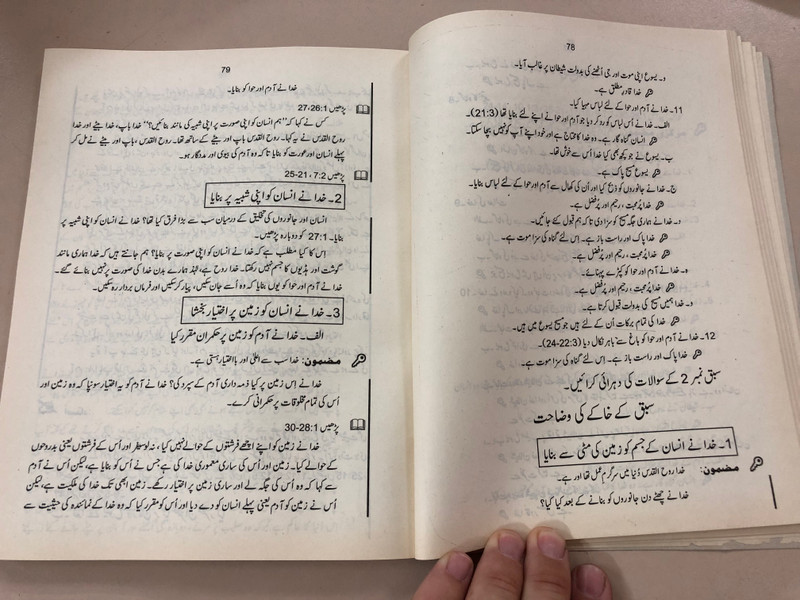 78
د۔ یسوع اپنی موت اور جی اُٹھنے کی بدولت شیطان پر غالب آیا۔
خدا قادرِ مطلق ہے۔
11۔ خدا نے آدم اور حوا کے لئے لباس مہیا کیا۔
الف۔ خدا نے اُس لباس کو رد کر دیا جو آدم اور حوا نے اپنے لئے بنایا تھا (21:3)۔
انسان گناہ گار ہے۔ وہ خدا کا محتاج ہے اور خود اپنے آپ کو نہیں بچا سکتا۔
ب۔ یسوع نے جو کچھ بھی کیا خدا اُس سے خوش تھا۔
یسوع مسیح پاک ہے۔
ج۔ خدا نے جانوروں کو ذبح کیا اور اُن کی کھال سے آدم اور حوا کے لئے لباس بنایا۔
خدا پُر محبت، رحیم اور پُرفضل ہے۔
د۔ خدا نے ہماری جگہ مسیح کو سزا دی تاکہ ہم قبول کئے جائیں۔
خدا پاک اور راست باز ہے۔ اِس لئے گناہ کی سزا موت ہے۔
خدا پُر محبت، رحیم اور پُرفضل ہے۔
ہ۔ خدا نے آدم اور حوا کو کپڑے پہنائے۔
خدا پُر محبت، رحیم اور پُرفضل ہے۔
و۔ خدا ہمیں مسیح کی بدولت قبول کرتا ہے۔
خدا کی تمام برکات اُن کے لئے ہیں جو مسیح یسوع میں ہیں۔
12۔ خدا نے آدم اور حوا کو باغ سے باہر نکال دیا (22:3-24)۔
خدا پاک اور راست باز ہے۔ اِس لئے گناہ کی سزا موت ہے۔
سبق نمبر 2 کے سوالات کی دہرائی کرائیں۔
سبق کے خاکے کی وضاحت
1۔ خدا نے انسان کے جسم کو زمین کی مٹی سے بنایا
مضمون: خدا روح القدس دُنیا میں سرگرم عمل تھا اور ہے۔
خدا نے چھٹے دن جانوروں کو بنانے کے بعد کیا کیا؟
79
خدا نے آدم اور حوا کو بنایا۔
پڑھیں 26:1،27
کس نے کہا کہ ”ہم انسان کو اپنی صورت پر اپنی شبیہ کی مانند بنائیں؟“ خدا باپ، خدا بیٹے اور خدا
روح القدس نے یہ کہا۔ روح القدس باپ اور بیٹے کے ساتھ تھا۔ روح القدس، باپ اور بیٹے نے مل کر
پہلے انسان اور عورت کو بنایا تاکہ وہ آدم کی بیوی اور مددگار ہو۔
پڑھیں 7:2، 21-25
2۔ خدا نے انسان کو اپنی شبیہ پر بنایا
انسان اور جانوروں کی تخلیق کے درمیان سب سے بڑا فرق کیا تھا؟ خدا نے انسان کو اپنی شبیہ پر
بنایا۔ 27:1 کو دوبارہ پڑھیں۔
اِس کا کیا مطلب ہے کہ خدا نے انسان کو اپنی صورت پر بنایا؟ ہم جانتے ہیں کہ خدا ہماری مانند
گوشت اور ہڈیوں کا جسم نہیں رکھتا۔ خدا روح ہے، لہٰذا ہمارے بدن خدا کی صورت پر نہیں بنائے گئے۔
خدا نے آدم اور حوا کو یوں بنایا کہ وہ اُسے جان سکیں، پیار کر سکیں اور فرماں بردار رہ سکیں۔
3۔ خدا نے انسان کو زمین پر اختیار بخشا
الف۔ خدا نے آدم کو زمین پر حکمران مقرر کیا
مضمون: خدا سب سے اعلیٰ اور بااختیار ہستی ہے۔
خدا نے اِس زمین پر کیا ذمہ داری آدم کے سپرد کی؟ خدا نے آدم کو یہ اختیار سونپا کہ وہ زمین اور
اُس کی تمام مخلوقات پر حکمرانی کرے۔
پڑھیں 28:1-30
خدا نے زمین کو اپنے اچھے فرشتوں کے حوالے نہیں کیا، نہ لوسیفر اور اُس کے فرشتوں یعنی بدروحوں
کے حوالے کیا۔ زمین اور اُس کی ساری معموری خدا کی ہے جس نے اُس کو بنایا ہے، لیکن اُس نے آدم
سے کہا کہ وہ اُس کی جگہ لے اور ساری زمین پر اختیار رکھے۔ زمین ابھی تک خدا کی ملکیت ہے، لیکن
اُس نے زمین کو آدم یعنی پہلے انسان کو دے دیا اور اُس کو مقرر کیا کہ وہ خدا کے نمائندہ کی حیثیت سے